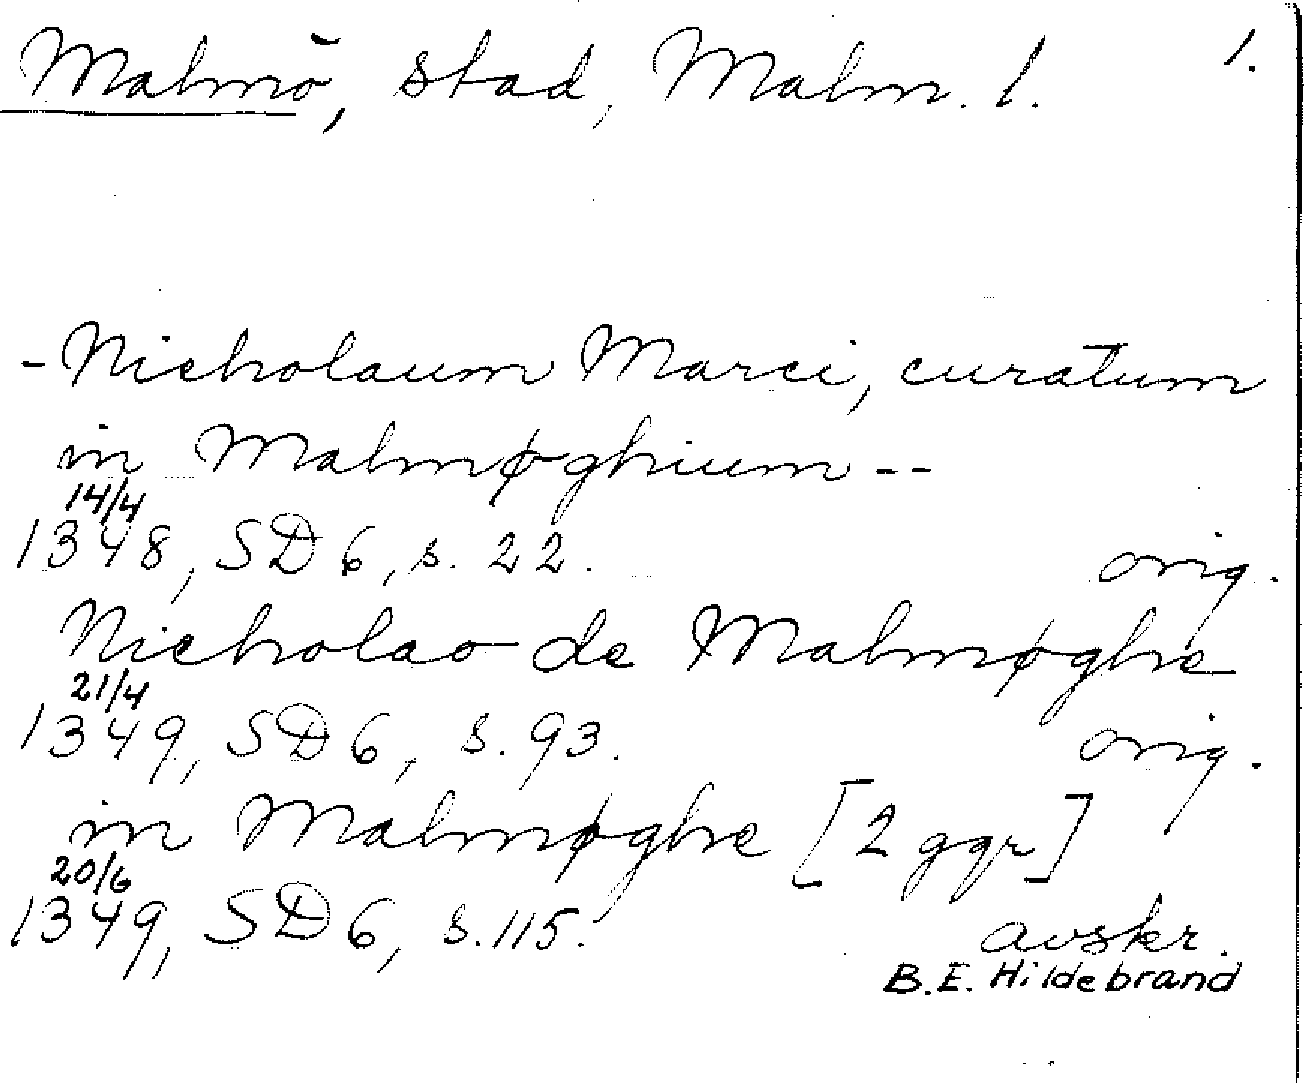 Malmö, stad, Malm. l. 1.
- Nicholaum Marci, curatum
in Malmøghium --
14/4
1348, SD 6, s. 22. orig.
Nicholao de Malmøghe
21/4
1349, SD 6, s. 93. orig.
in Malmøghe [2 ggr]
20/6
1349, SD 6, s. 115. avskr.
B.E. Hildebrand